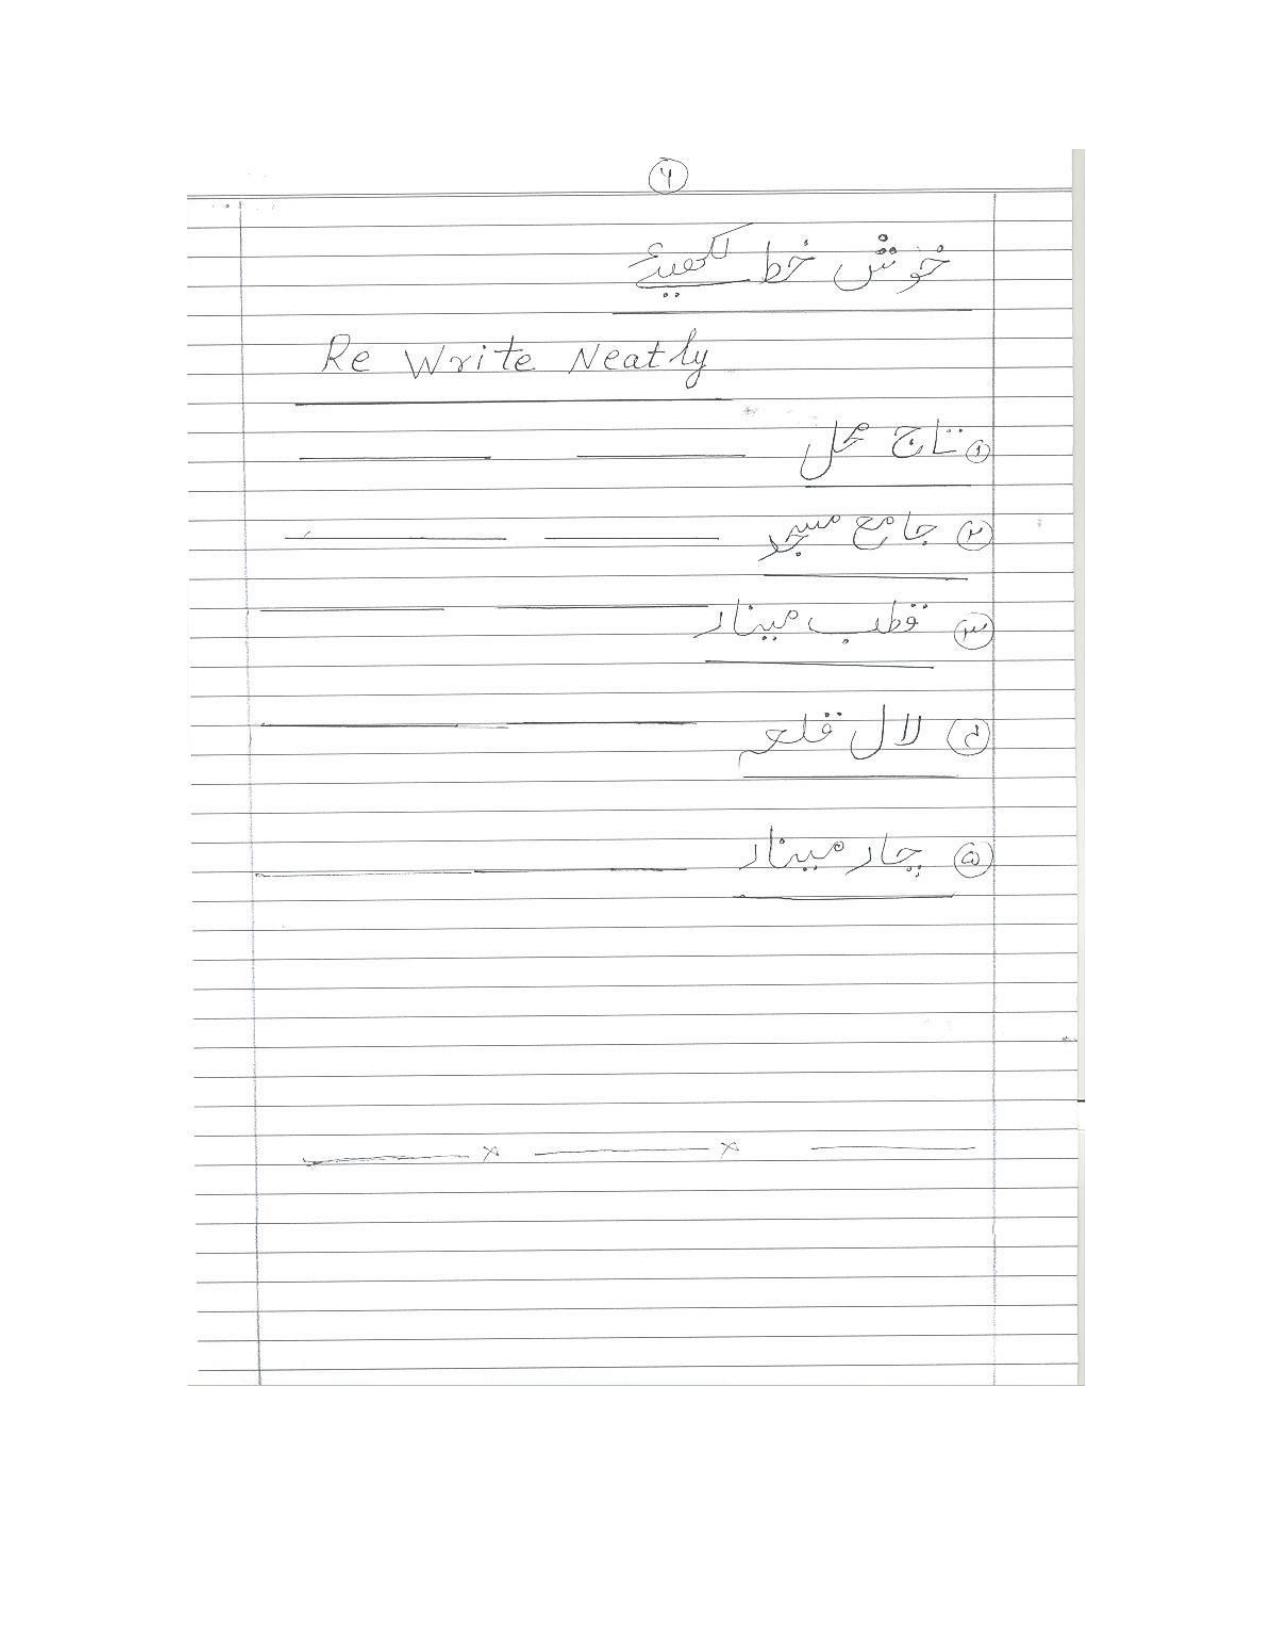 ۶
خوش خط لکھیئے
Re Write Neatly
۱ تاج محل
۲ جامع مسجد
۳ قطب مینار
۴ لال قلعہ
۵ چار مینار